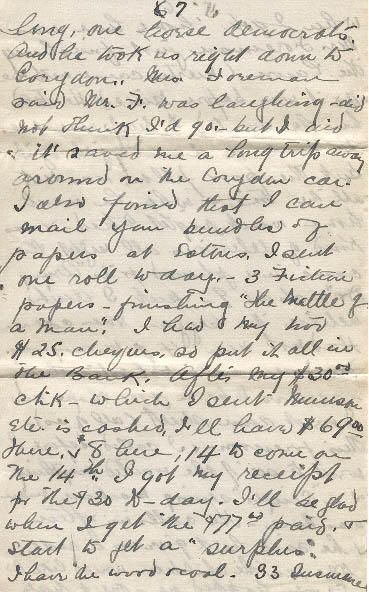 87
long, one horse democrats.
And he took us right down to
Corydon. Mrs Foreman
said Mr. F. was laughing - did
not think I'd go - but I did
& it saved me a long trip away
around on the Corydon car.
I also found that I can
mail you bundles of
papers at Eatons. I sent
one roll to day. - 3 Fiction
papers - finishing "The Mettle of
a Man". I had my two
$25. cheques, so put it all in
the Bank. After my $30.00
chk - which I sent Munson
etc. is cashed, I'll have $69.00
there, & $8 here, 14 to come on
the 14th. I got my receipt
for the $30 to-day. I'll be glad
when I get the $77.00 paid, &
start to get a "surplus".
I have the wood & coal. 33 Insurance